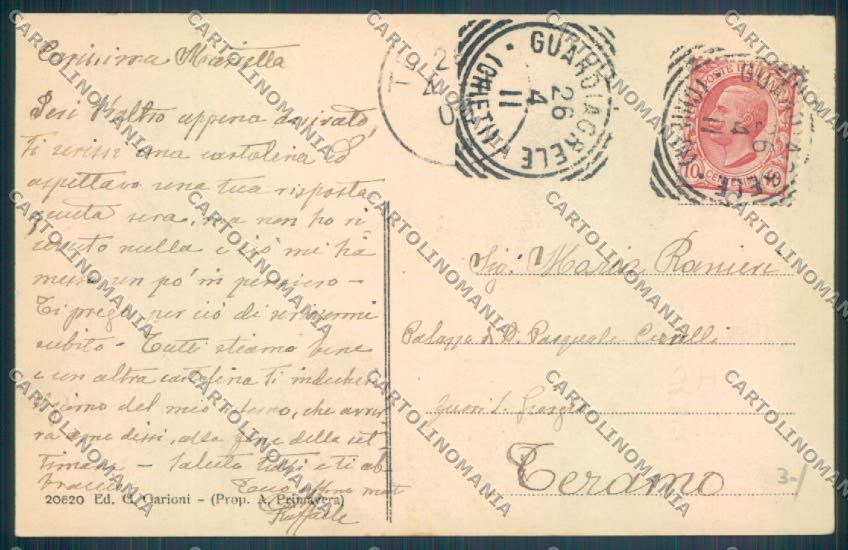 Carissima Marietta
Ieri l'altro appena arrivato,
Ti scrissi una cartolina ed
aspettavo una tua risposta
questa sera, ma non ho ri
cevuto nulla e ciò mi ha
messo un po' in pensiero -
Ti prego per ciò di scrivermi
subito - Tutti stiamo bene
e con altra cartolina Ti indicherò
giorno del mio ritorno, che avver
rà come dissi, alla fine della set
timana - Saluta tutti e ti ab
braccio
Tuo aff.mo
Raffaele
20620 Ed. G. Garioni - (Prop. A. Primavera)
GUARDIAGRELE
(CHIETI)
26
4
11
GUARDIAGRELE
26
4
11
POSTE
10 CENTESIMI 10
Sig. Maria Ranieri
Palazzo D. Pasquale
fuori
Teramo
3-/
CARTOLINOMANIA